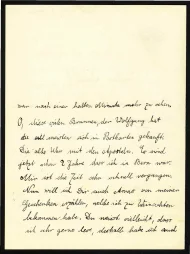 war nach einer halben Minute mehr zu sehen
O, diese vielen Brunnen, der Wolfgang hat
die all meisten sich in Postkarten gekauft.
Die alte Uhr mit den Aposteln. Es sind
jetzt schon 2 Jahre her ich in Bern war.
Mir ist die Zeit sehr schnell vergangen.
Nun will ich Dir auch etwas von meinen
Geschenken erzählen, welche ich zu
bekommen habe. Du weisst vielleicht, dass
ich sehr gerne lese, deshalb habe ich auch